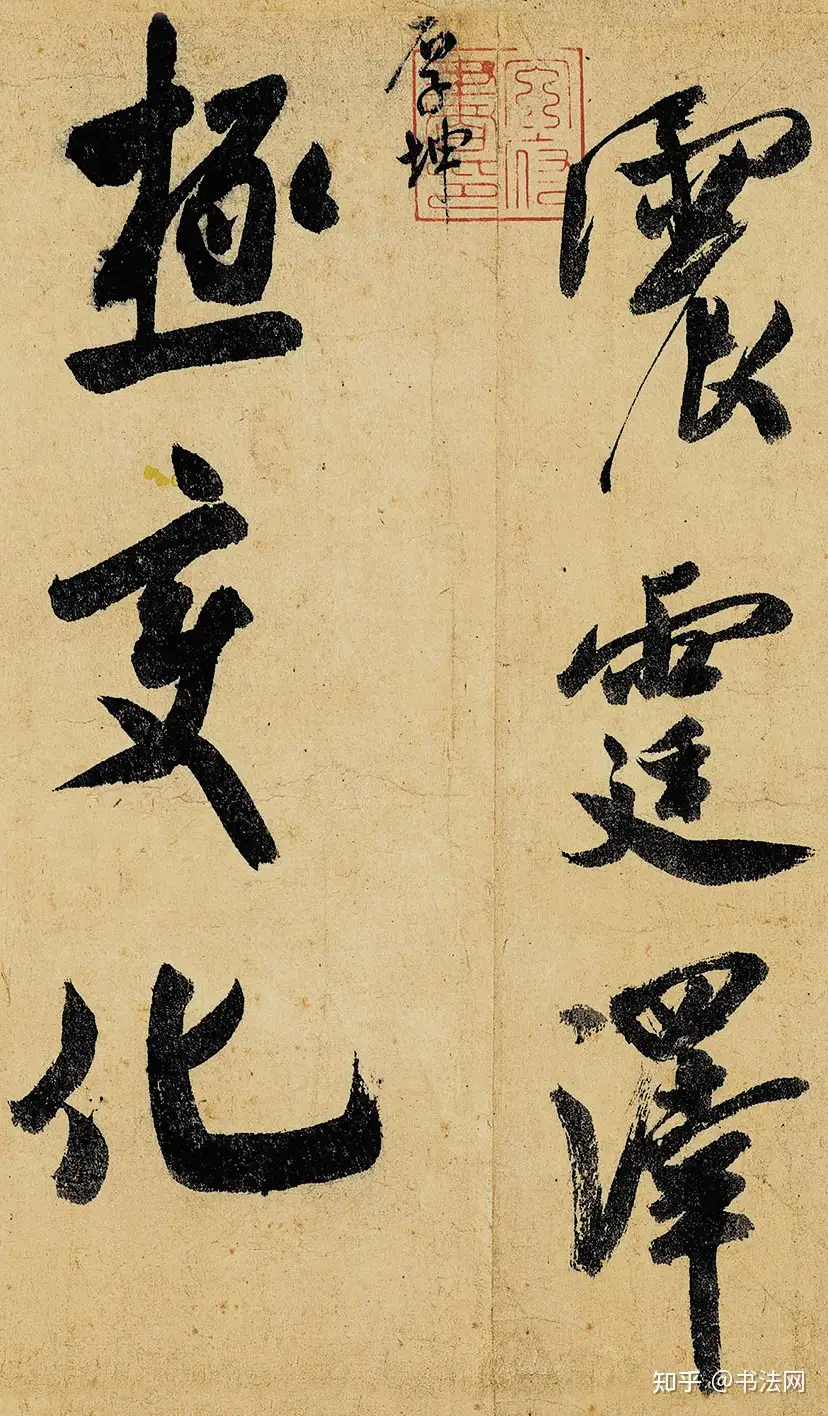 震霆澤
厚坤
極变化
知乎 @书法网